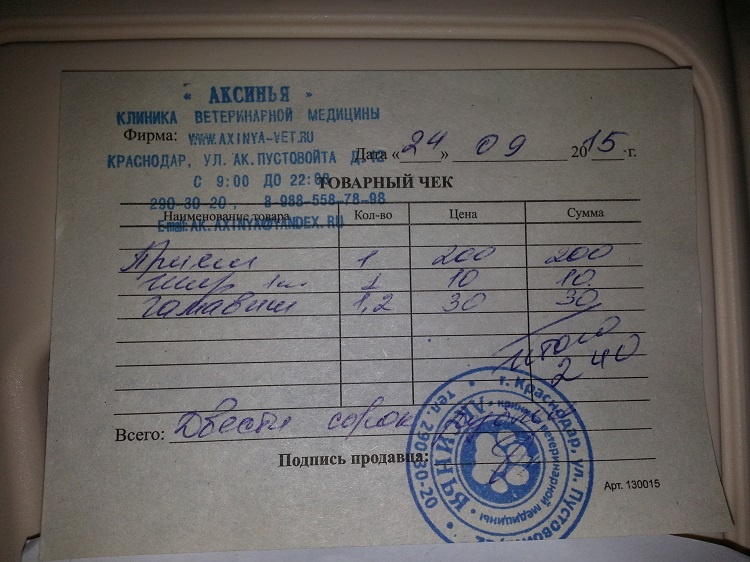 « АКСИНЬЯ »
КЛИНИКА ВЕТЕРИНАРНОЙ МЕДИЦИНЫ
Фирма: WWW.AXINYA-VET.RU
Дата «24» 09 2015 г.
КРАСНОДАР, УЛ. АК. ПУСТОВОЙТА
С 9:00 ДО 22:00
ТОВАРНЫЙ ЧЕК
290-30-20, 8-988-558-78-98
E-mail: AK.AXINYA@YANDEX.RU
Наименование товара Кол-во Цена Сумма
Прием 1 200 200
шпр 1 10 10
гамавит 1,2 30 30
Итого
240
Всего: Двести сорок
Подпись продавца:
Арт. 130015
г. Краснодар, ул. Пустовойта
тел. 290-30-20
клиника ветеринарной медицины
АКСИНЬЯ